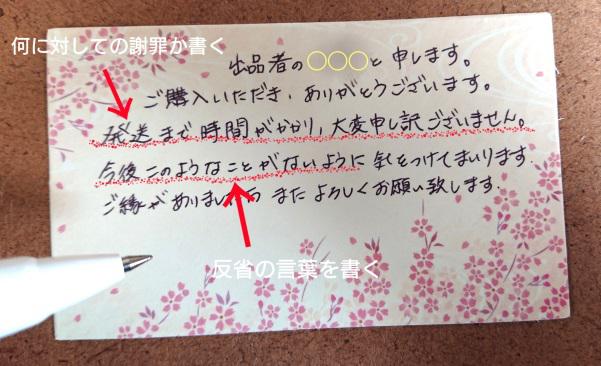 何に対しての謝罪か書く
出品者の○○○と申します。
ご購入いただき、ありがとうございます。
発送まで時間がかかり、大変申し訳ございません。
今後このようなことがないように気をつけてまいります。
ご縁がありましたら またよろしくお願い致します。
反省の言葉を書く